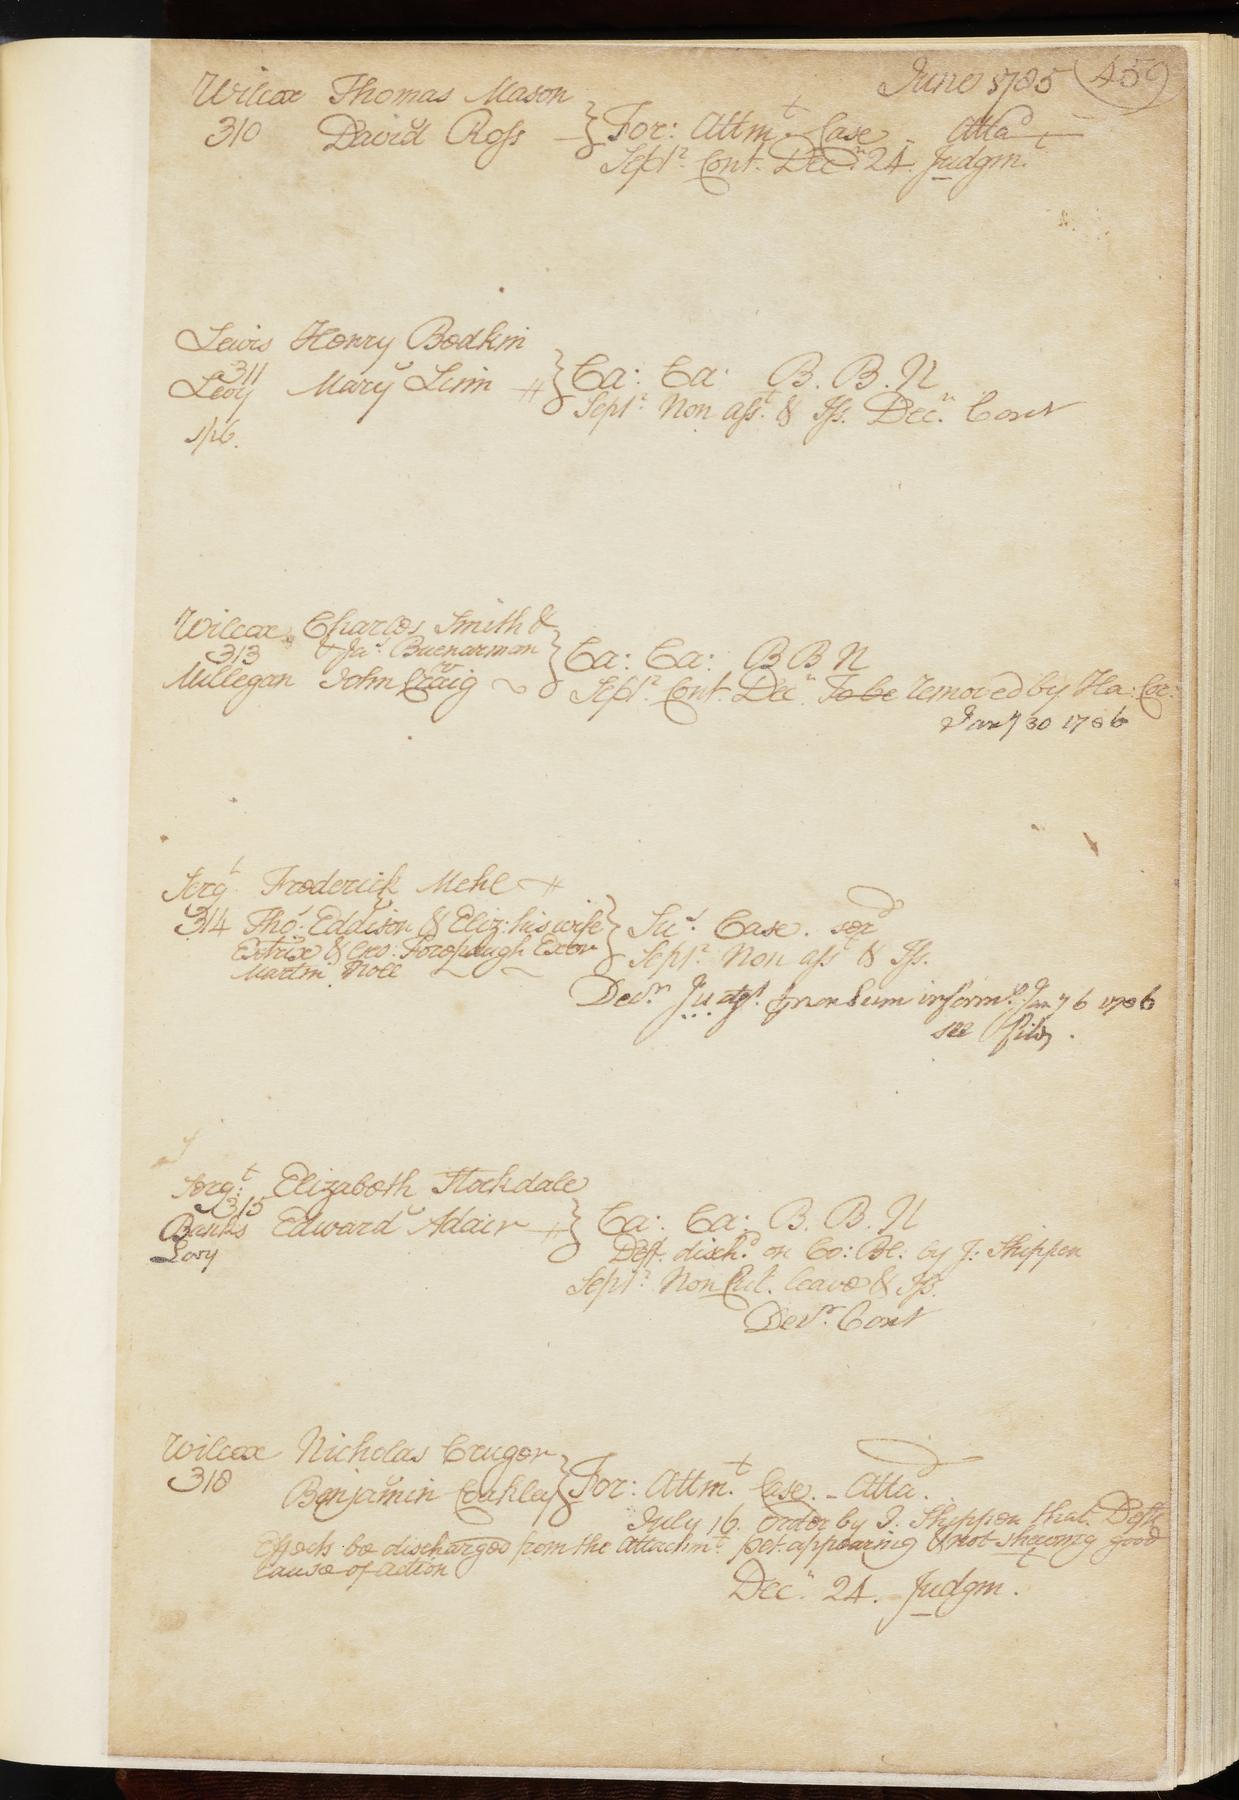 June 1785 459
Wilcox Thomas Mason
310 David Ross } For: Attmt. Case - Attad
Septr. Cont. Decr. 24. Judgmt.
Lewis Henry Bodkin
311
Levy Mary Linn } Ca: Ca: B. B. N
Septr. Non asst. & Iss. Decr. Cont
1/26.
Wilcox Charles Smith &
313 & Jas. }
Millegan John Craig Ca: Ca: B B N
Septr. Cont. Decr. To be removed by Ha: Cor:
Jany 30 1786
Sergt. Frederick Mehl
314 Thos. Eddison & Eliz: his wife } Sus. Case. serd
Extrix & Exor Septr. Non asst & Iss.
Martin Noll
Decr. Judgt. non Sum informs. Jany 6 1786
see filed.
Sergt: Elizabeth Stockdale
315
Banks Edward Adair } Ca: Ca: B. B. N
Levy Deft. dischd. on Co: Bl: by J: Shippen
Septr. Non Cul. leave & Iss.
Decr. Cont
Wilcox Nicholas Cruger
318 Benjamin } For: Attmt. Case. - Attad.
July 16. Order by J. Shippen that Defts
Effects be discharged from the attachmt. pet. appearing & not shewing good
cause of action
Decr. 24. Judgm.